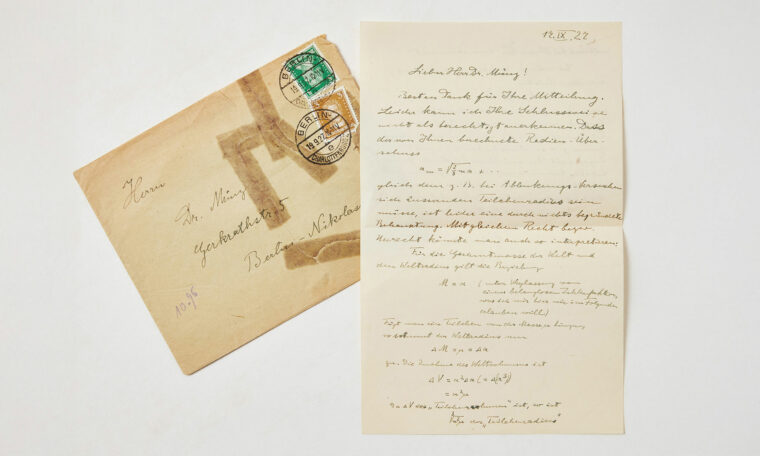 BERLIN
BERLIN
19.9.27
CHARLOTTENBURG
Herrn
Dr. Müntz
5
Berlin-Nikolas
10.95
19.IX.27.
Lieber Herr Dr. Müntz!
Besten Dank für Ihre Mitteilung.
Leider kann ich Ihre Schlussweise
nicht als berechtigt anerkennen. Dass
der von Ihnen berechnete Radien-Über-
schuss
gleich dem z. B. bei Ablenkungs-Versuchen
sich äussernden Teilchenradius sein
müsse, ist leider eine durch nichts begründete
Behauptung. Mit gleichem Recht bezw.
Unrecht könnte man auch so interpretieren:
Für die Gesamtmasse der Welt und
den Weltradius gilt die Beziehung
M = α (unter Weglassung von
Zahlenfaktoren,
was ich mir hier wie im Folgenden
erlauben will)
Fügt man ein Teilchen von der Masse μ hinzu,
so nimmt der Weltradius um
Δ M = μ = Δα
zu. Die Zunahme des Weltvolumens ist
Da ΔV das „Teilchenvolumen" ist, so ist
der „Teilchenradius"